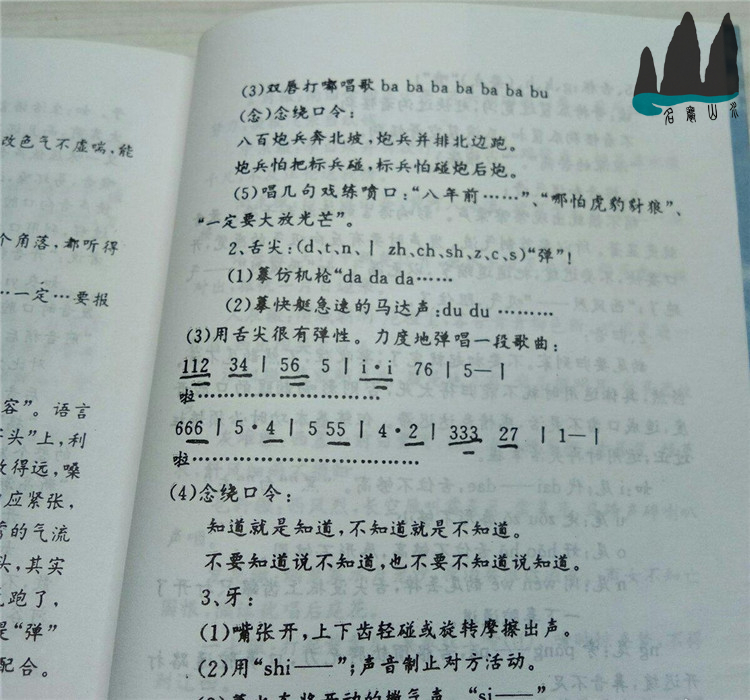 改色气不虚喘,能
个角落,都听得
…一定…要报
容”。语言
头”上,利
放得远,嗓
应紧张,
的气流
头,其实
跑了,
是“弹”
配合。
(3)双唇打嘟唱歌 ba ba ba ba ba ba ba bu
(念)念绕口令:
八百炮兵奔北坡,炮兵并排北边跑。
炮兵怕把标兵碰,标兵怕碰炮后炮。
(5)唱几句戏练喷口:“八年前……”、“哪怕虎豹豺狼”、
“一定要大放光芒”。
2、舌尖:(d、t、n、l zh、ch、sh、z、c、s)“弹”!
(1)摹仿机枪“da da da……
(2)摹快艇急速的马达声:du du ………
(3)用舌尖很有弹性。力度地弹唱一段歌曲:
112 34 | 56 5 | i·i 76 | 5—|
啦………………………………
666 | 5·4 | 5 55 | 4·2 | 333 27 | 1—|
啦………………………………
(4)念绕口令:
知道就是知道,不知道就是不知道。
不要知道说不知道,也不要不知道说知道。
3、牙:
(1)嘴张开,上下齿轻碰或旋转摩擦出声。
(2)用“shi——”;声音制止对方活动。
名窝山水